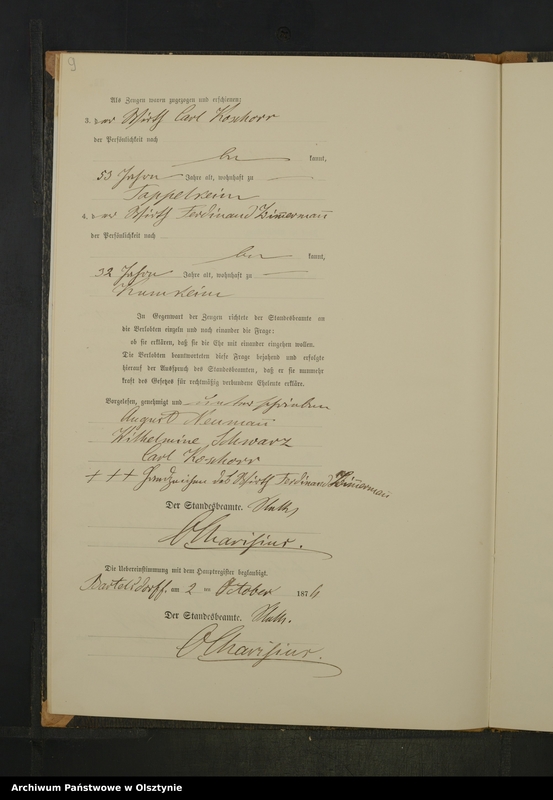 9
Als Zeugen waren zugezogen und erschienen:
3. der Wirth Carl Koschorr
der Persönlichkeit nach
be kannt,
53 Jahre Jahre alt, wohnhaft zu
Tappelkeim
4. der Wirth Ferdinand Zimmermann
der Persönlichkeit nach
be kannt,
32 Jahre Jahre alt, wohnhaft zu
Kumkeim
In Gegenwart der Zeugen richtete der Standesbeamte an
die Verlobten einzeln und nach einander die Frage:
ob sie erklären, daß sie die Ehe mit einander eingehen wollen.
Die Verlobten beantworteten diese Frage bejahend und erfolgte
hierauf der Ausspruch des Standesbeamten, daß er sie nunmehr
kraft des Gesetzes für rechtmäßig verbundene Eheleute erkläre.
Vorgelesen, genehmigt und unterschrieben
August Neumann
Wilhelmine Schwarz
Carl Koschorr
+++ Handzeichen des Wirth Ferdinand Zimmerman
Der Standesbeamte.
Die Uebereinstimmung mit dem Hauptregister beglaubigt.
Bartelsdorff, am 2 ten October 1874
Der Standesbeamte.
Archiwum Państwowe w Olsztynie